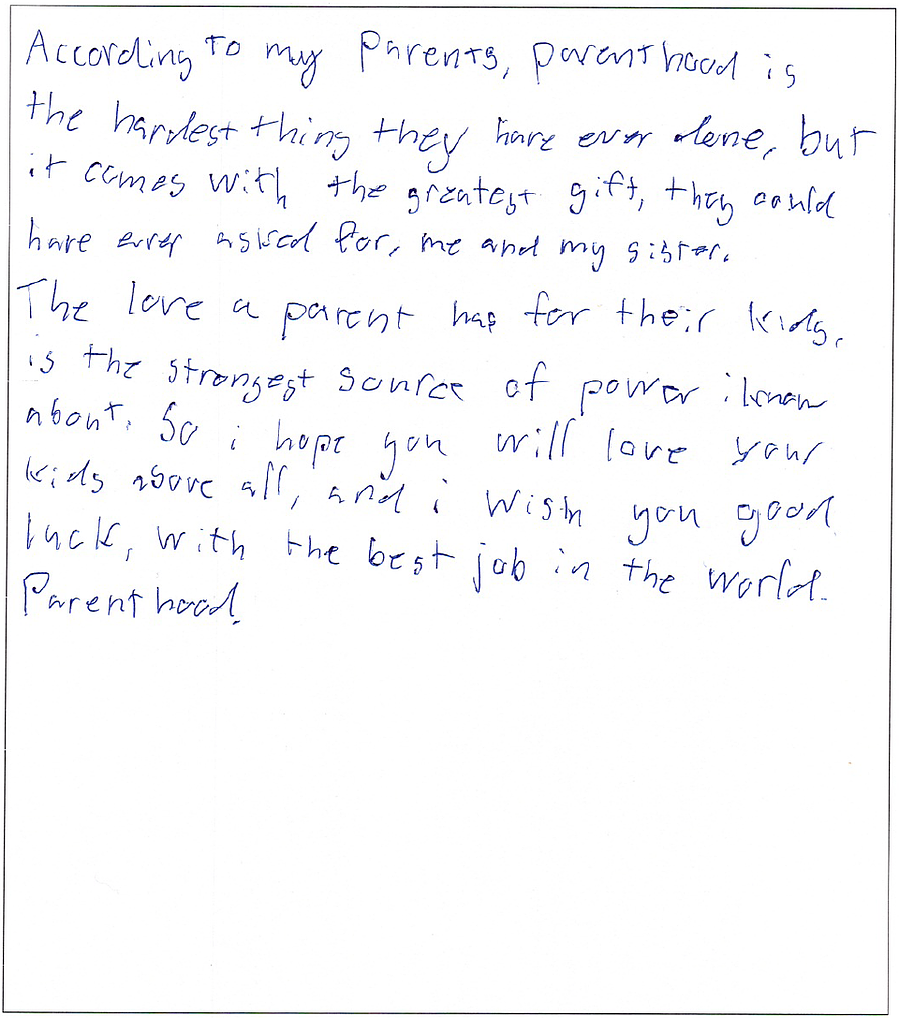 According to my Parents, parenthood is
the hardest thing they have ever done, but
it comes with the greatest gift, they could
have ever asked for, me and my sister.
The love a parent has for their kids,
is the strongest source of power i know
about. So i hope you will love your
kids above all, and i wish you good
luck, with the best job in the world.
Parenthood.